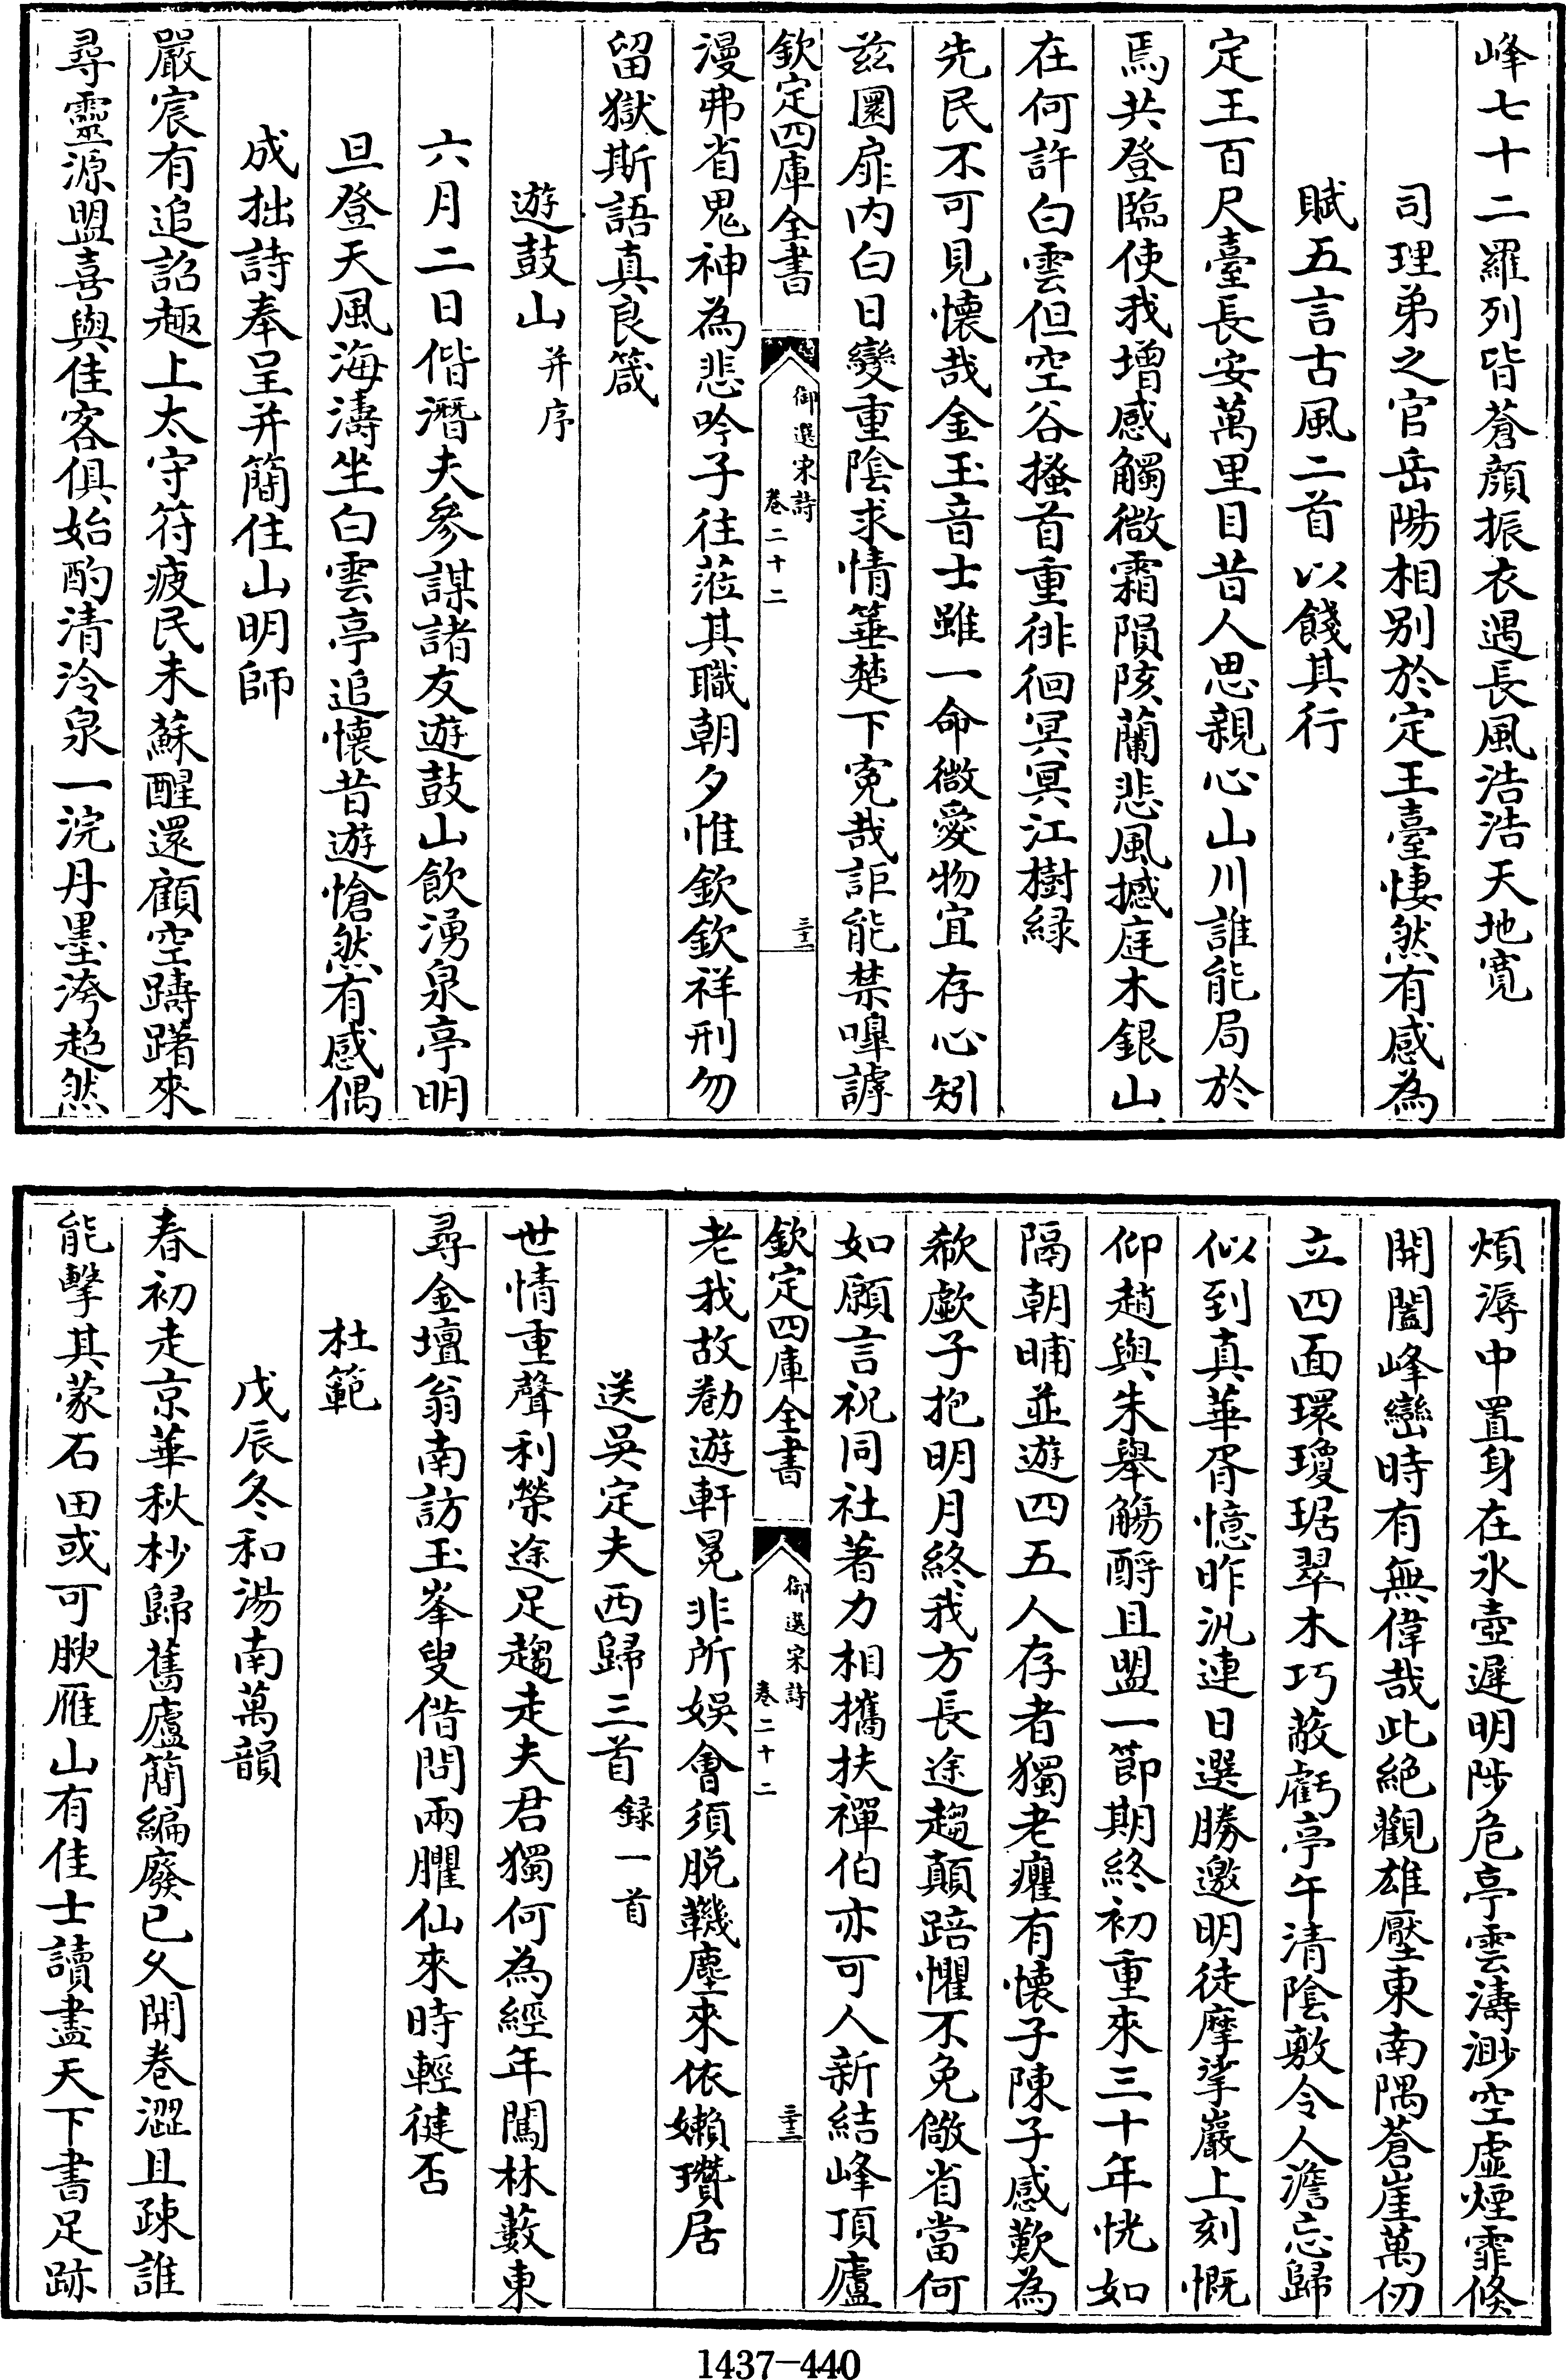 峰七十二羅列皆蒼顔振衣遇長風浩浩天地寛
司理弟之官岳陽相别於定王臺悽然有感為
賦五言古風二首以餞其行
定王百尺臺長安萬里目昔人思親心山川誰能局於
焉共登臨使我增感觸微霜隕陔蘭悲風撼庭木銀山
在何許白雲但空谷搔首重徘徊冥冥江樹緑
先民不可見懷哉金玉音士雖一命微愛物宜存心矧
兹圜扉内白日變重陰求情箠楚下寃哉詎能禁嘷謼
欽定四庫全書
御選宋詩
卷二十二
三十二
漫弗省鬼神為悲吟子往蒞其職朝夕惟欽欽祥刑勿
留獄斯語真良箴
遊鼓山并序
六月二日偕潛夫參謀諸友遊鼓山飲湧泉亭明
旦登天風海濤坐白雲亭追懷昔遊愴然有感偶
成拙詩奉呈并簡住山明師
嚴宸有追詔趣上太守符疲民未蘇醒還顧空躊躇來
尋靈源盟喜與佳客俱始酌清泠泉一浣丹墨洿超然
煩溽中置身在氷壺遲明陟危亭雲濤渺空虚煙霏倏
開闔峰巒時有無偉哉此絶觀雄壓東南隅蒼崖萬仞
立四面環瓊琚翠木巧蔽虧亭午清陰敷令人澹忘歸
似到真華胥憶昨汎連日選勝邀明徒摩挲巖上刻慨
仰趙與朱舉觴酹且盟一節期終初重來三十年恍如
隔朝晡並遊四五人存者獨老癯有懷子陳子感歎為
欷歔子抱明月終我方長途趨顛踣懼不免儆省當何
如願言祝同社著力相攜扶禪伯亦可人新結峰頂廬
欽定四庫全書
御選宋詩
卷二十二
三十三
老我故勌遊軒冕非所娱會須脱鞿塵來依嬾瓚居
送吳定夫西歸三首録一首
世情重聲利榮途足趨走夫君獨何為經年闖林藪東
尋金壇翁南訪玉峯叟借問兩臞仙來時輕揵否
杜範
戊辰冬和湯南萬韻
春初走京華秋杪歸舊廬簡編廢已久開卷澀且疎誰
能擊其蒙石田或可腴雁山有佳士讀盡天下書足跡
1437-440